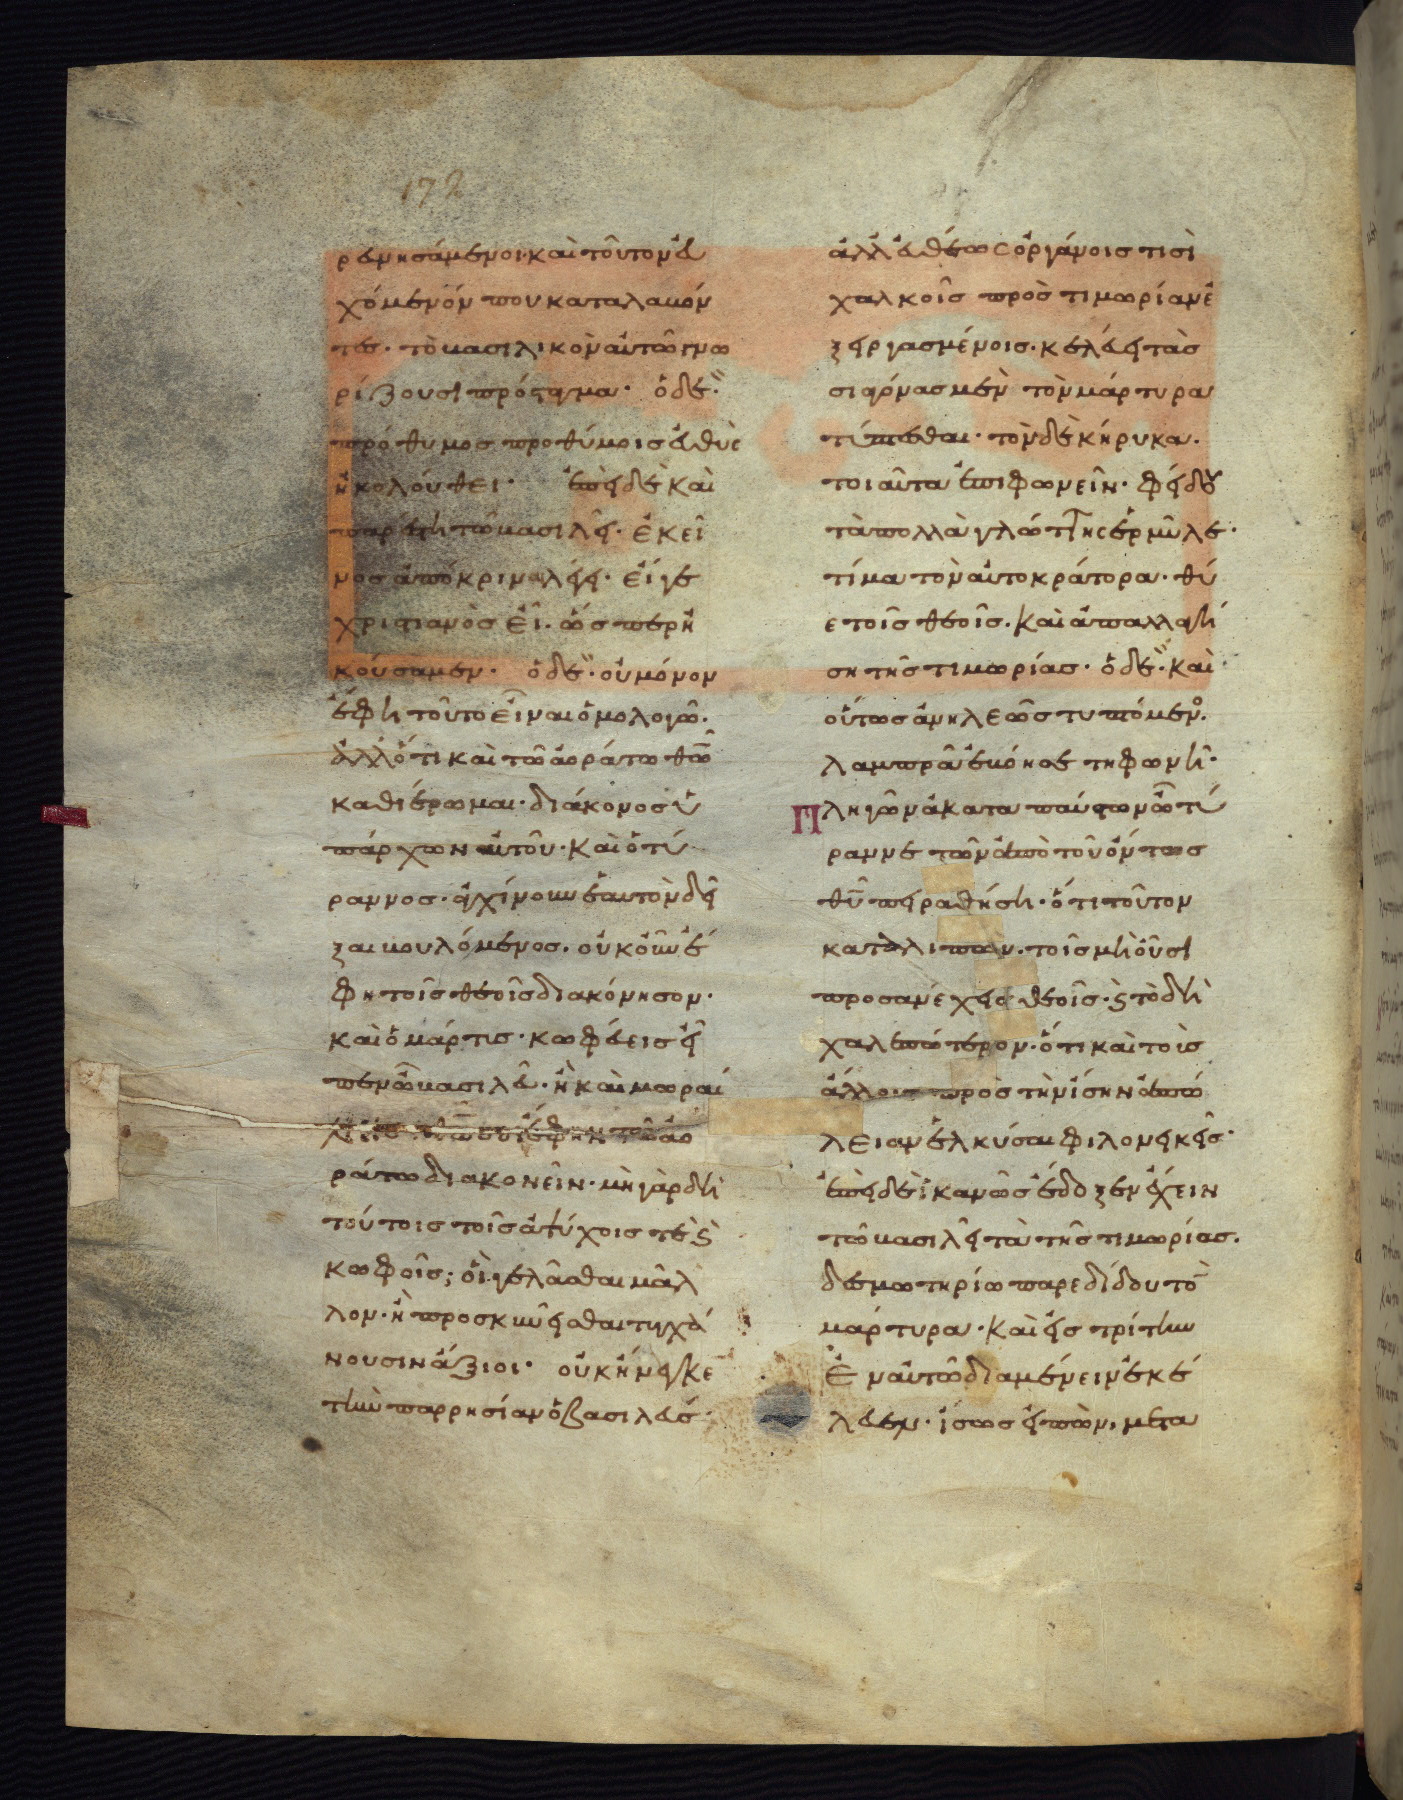 172
ρευησάμενοι· καὶ τοῦτον εὐ
χόμενόν που καταλαβόν
τες· τὸ βασιλικὸν αὐτῶ γνω
ρίζουσι πρόσταγμα· ὁ δὲ·
πρόθυμος προθύμοις εὐθὺς
ἠκολούθει· ἐπεὶ δὲ καὶ
παρέστη τῶ βασιλεῖ· ἐκεῖ
νος ἀπόκριναι λέγει· εἴγε
χριστιανὸς εἶ· ὥσπερ ἠ
κούσαμεν· ὁ δὲ· οὐ μόνον
ἔφη τοῦτο εἶναι ὁμολογῶ·
ἀλλ' ὅτι καὶ τῶ ἀοράτω θῶ
καθιέρωμαι· διάκονος ὑ
πάρχων αὐτοῦ· καὶ ὁ τύ
ραννος· ἀγχίνουν ἑαυτὸν δεῖ
ξαι βουλόμενος· οὐκοῦν ἔ
φη τοῖς θεοῖς διακόνησον·
καὶ ὁ μάρτυς· κωφεύεις εἶ
πεν ὦ βασιλεῦ· ἢ καὶ μωραί
ἔφην τῶ ἀο
ράτω διακονεῖν· μὴ γὰρ δὴ
τούτοις τοῖς ἀψύχοις τὲ ϗ
κωφοῖς; οἳ γελᾶσθαι μᾶλ
λον· ἢ προσκυνεῖσθαι τυγχά
νουσιν ἄξιοι· οὐκ ἤνεγκε
τὴν παρρησίαν ὁ βασιλεύς·
ἀλλ' εὐθέως ὀργάνοις τισὶ
χαλκοῖς πρὸς τιμωρίαν ἐ
ξεργασμένοις· κελεύει τὰς
σιαγόνας μὲν τὸν μάρτυρα
τύπτεσθαι· τὸν δὲ κήρυκα·
τοιαῦτα ἐπιφωνεῖν· φείδου
τὰ πολλὰ γλώττης ἑρμύλε·
τίμα τὸν αὐτοκράτορα· θύ
ε τοῖς θεοῖς· καὶ ἀπαλλαγή
ση τῆς τιμωρίας· ὁ δὲ· καὶ
οὕτως ἀνηλεῶς τυπτόμενος·
λαμπρᾶ ἐβόησε τῆ φωνῆ·
Πληγῶν ἀκαταπαύστων ὦ τύ
ραννε τῶν ἀπὸ τοῦ ὄντως
θυ πειραθήση· ὅτι τοῦτον
καταλιπὼν· τοῖς μὴ οὖσι
προσανέχεις θεοῖς· ϗ τὸ δὴ
χαλεπώτερον· ὅτι καὶ τοὶς
ἄλλους πρὸς τὴν ἴσην ἀπώ
λειαν ἑλκύσαι φιλονεικεῖς·
ἐπεὶ δὲ ἱκανῶς ἔδοξεν ἔχειν
τῶ βασιλεῖ τὰ τῆς τιμωρίας·
δεσμωτηρίω παρεδίδου τὸν
μάρτυρα· καὶ εἰς τρίτην
Ἐν αὐτῶ διαμένειν ἐκέ
λευεν· ἴσως εἰπὼν, μετα